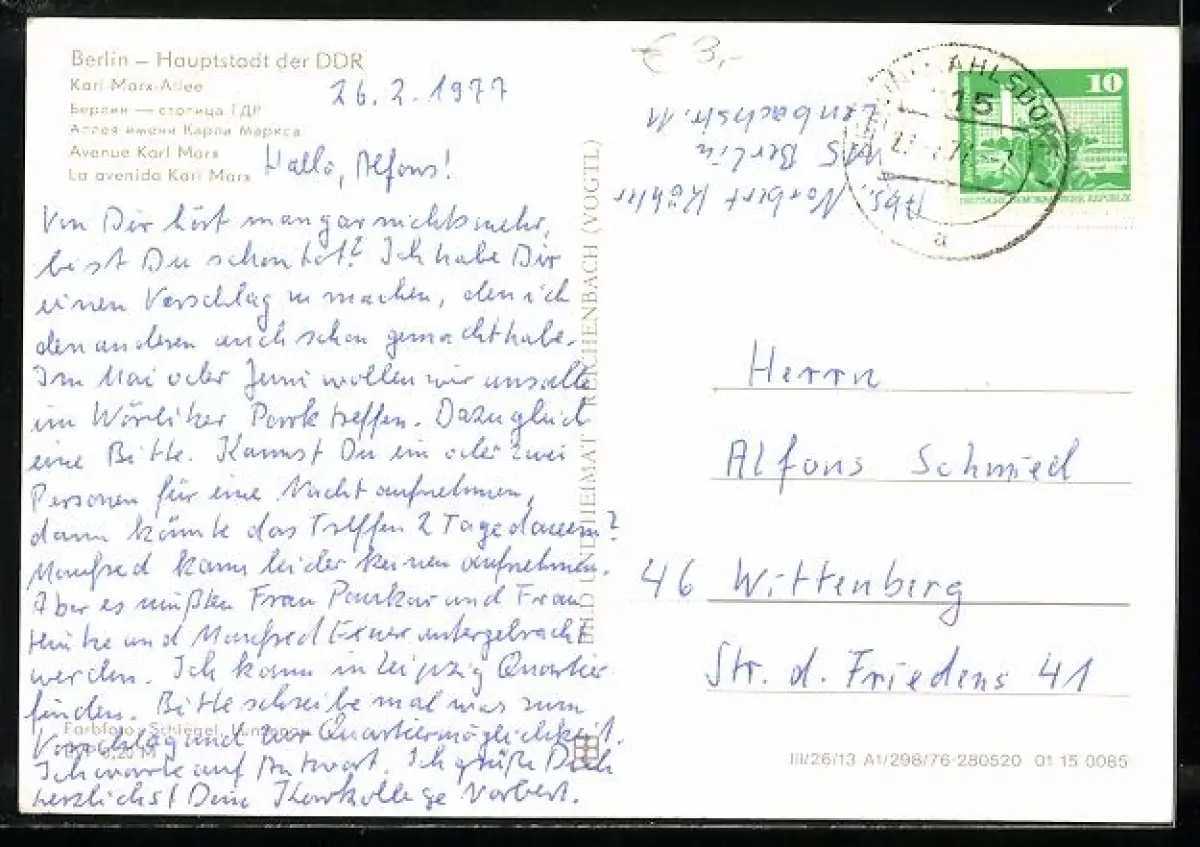 Berlin – Hauptstadt der DDR
Karl-Marx-Allee
Берлин — столица ГДР
Аллея имени Карла Маркса
Avenue Karl Marx
La avenida Karl Marx
26.2.1977
Hallo, Alfons!
Von Dir hört man gar nichts mehr,
bist Du schon tot? Ich habe Dir
einen Vorschlag zu machen, den ich
den anderen auch schon gemacht habe.
Im Mai oder Juni wollen wir uns alle
im Wörlitzer Park treffen. Dazu gleich
eine Bitte. Kannst Du ein oder zwei
Personen für eine Nacht aufnehmen,
dann könnte das Treffen 2 Tage dauern?
Manfred kann leider keinen aufnehmen.
Aber es müßten Frau und Frau
und Manfred Exner untergebracht
werden. Ich kann in Leipzig Quartier
finden. Bitte schreibe mal was zum
Vorschlag und zur Quartiermöglichkeit.
Ich warte auf Antwort. Ich grüße Dich
herzlichst Dein Norbert.
Farbfoto: Schlegel,
BILD UND HEIMAT REICHENBACH (VOGTL)
€ 3,-
Abs. Norbert Köhler
115 Berlin
Lenbachstr. 11
AHLSDORF
15
a
10
DEUTSCHE DEMOKRATISCHE REPUBLIK
Herrn
Alfons Schmied
46 Wittenberg
Str. d. Friedens 41
III/26/13 A1/298/76-280520 01 15 0085